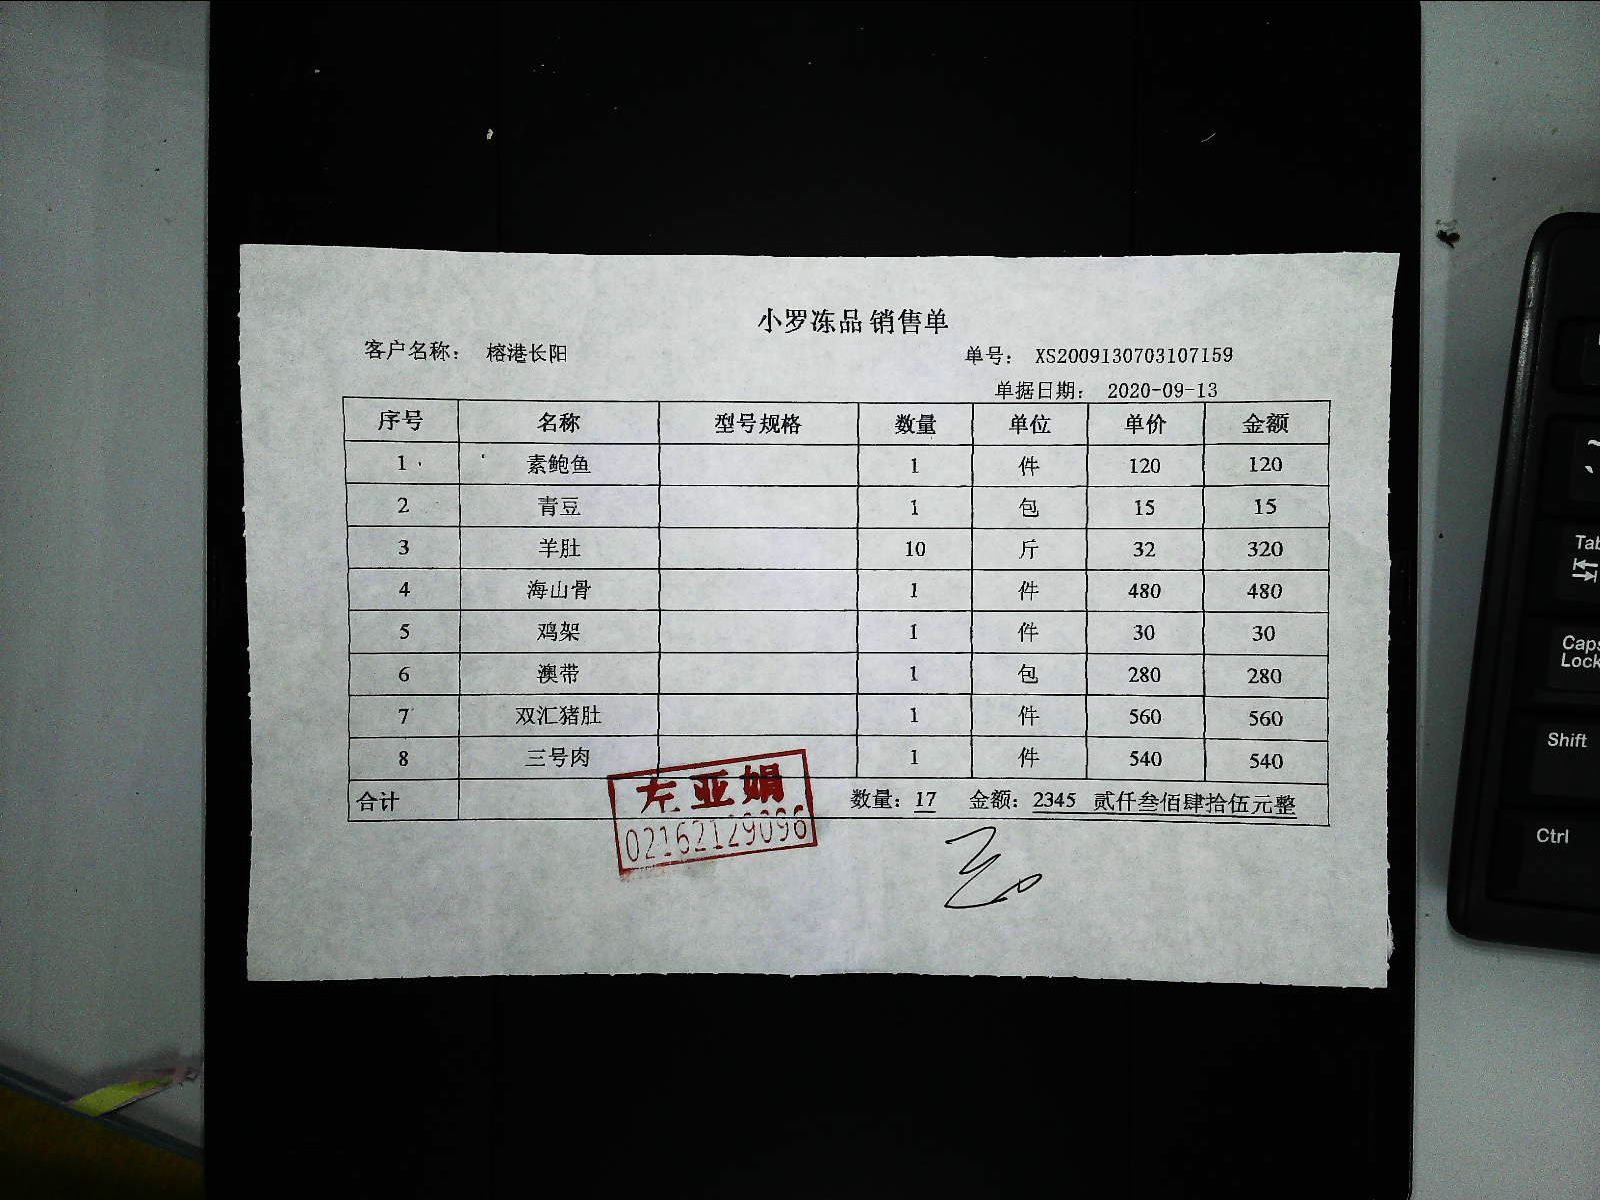 小罗冻品 销售单
客户名称： 榕港长阳 单号： XS2009130703107159
单据日期： 2020-09-13
序号 名称 型号规格 数量 单位 单价 金额
1 素鲍鱼 1 件 120 120
2 青豆 1 包 15 15
3 羊肚 10 斤 32 320
4 海山骨 1 件 480 480
5 鸡架 1 件 30 30
6 澳带 1 包 280 280
7 双汇猪肚 1 件 560 560
8 三号肉 1 件 540 540
合计 数量：17 金额：2345 贰仟叁佰肆拾伍元整
左亚娟
02162129096
Tab
Caps
Lock
Shift
Ctrl